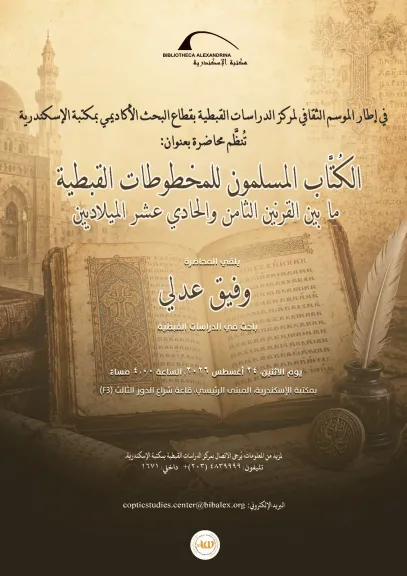 BIBLIOTHECA ALEXANDRINA
مكتبة الإسكندرية
في إطار الموسم الثقافي لمركز الدراسات القبطية بقطاع البحث الأكاديمي بمكتبة الإسكندرية
تُنظَّم محاضرة بعنوان:
الكُتَّاب المسلمون للمخطوطات القبطية
ما بين القرنين الثامن والحادي عشر الميلاديين
يلقي المحاضرة
وفيق عدلي
باحث في الدراسات القبطية
يوم الاثنين، ٢٤ أغسطس ٢٠٢٦، الساعة ٤,٠٠ مساءً
بمكتبة الإسكندرية، المبنى الرئيسي، قاعة شراع الدور الثالث (F3)
لمزيد من المعلومات يُرجى الاتصال بمركز الدراسات القبطية بمكتبة الإسكندرية.
تليفون: ٤٨٣٩٩٩٩ (٢٠٣)+ داخلي: ١٦٧١
البريد الإلكتروني: copticstudies.center@bibalex.org